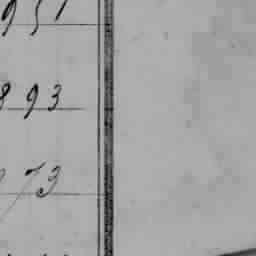 951
893
73